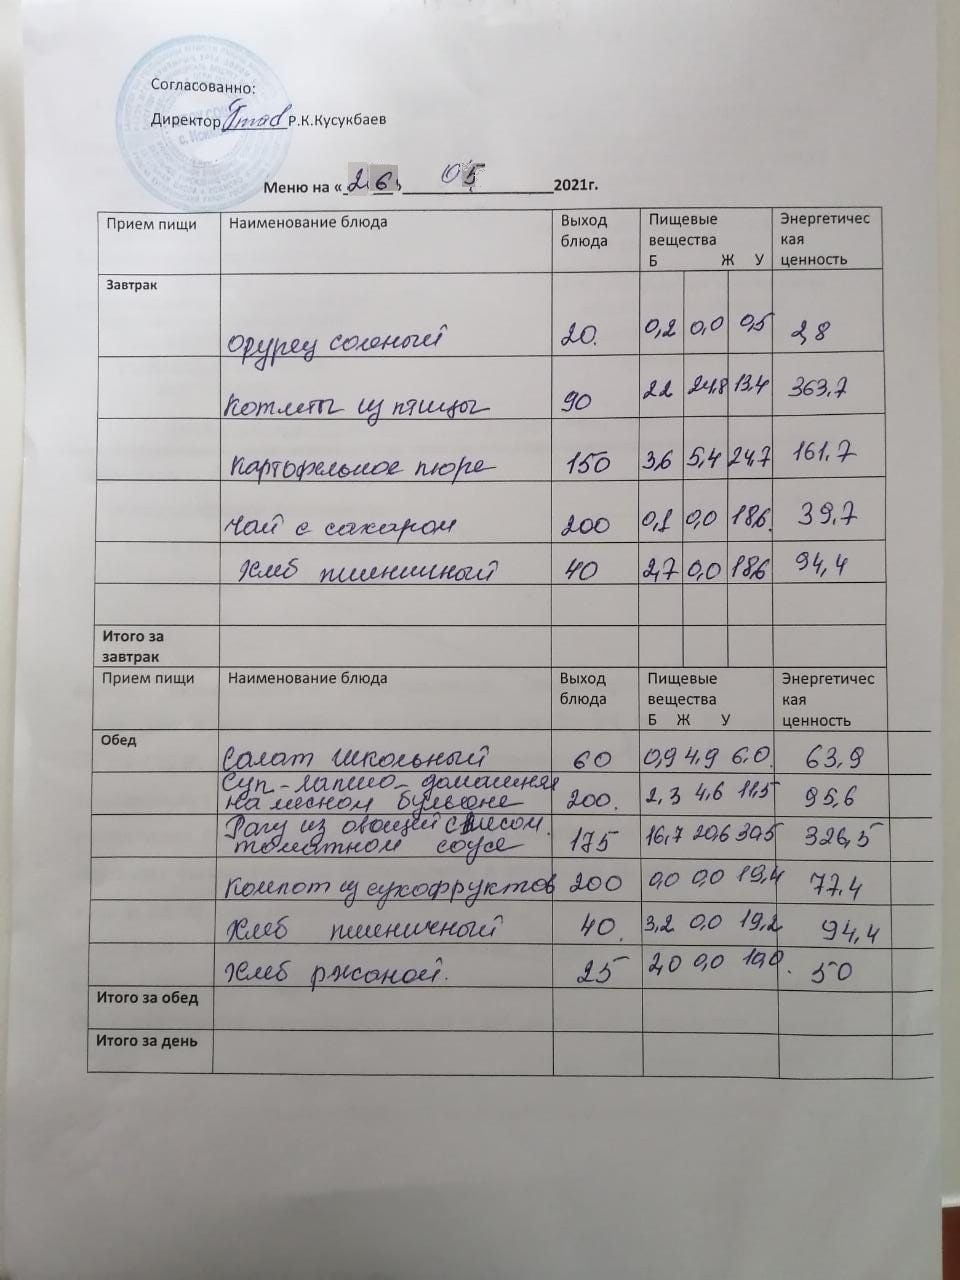 Согласованно:
Директор Р.К.Кусукбаев
Меню на « 26 » 05 2021г.
Прием пищи Наименование блюда Выход блюда Пищевые вещества Б Ж У Энергетическая ценность
Завтрак
Огурец соленый 20. 0,2 0,0 0,5 2,8
Котлеты из птицы 90 22 24,8 13.4 363,7
Картофельное пюре 150 3,6 5,4 24,7 161,7
Чай с сахаром 200 0,1 0,0 18,6. 39,7
Хлеб пшеничный 40 2,7 0,0 18,6 94,4
Итого за завтрак
Прием пищи Наименование блюда Выход блюда Пищевые вещества Б Ж У Энергетическая ценность
Обед
Салат школьный 60 0,9 4,9 6,0. 63,9
Суп-лапша-домашняя
на мясном бульоне 200. 2,3 4,6 11,5 95,6
Рагу из овощей с мясом.
томатном соусе 175 16,7 20,6 30,5 326,5
Компот из сухофруктов 200 0,0 0,0 19,4 77.4
Хлеб пшеничный 40. 3,2 0,0 19,2 94,4
Хлеб ржаной. 25 2,0 0,0 10,0. 50
Итого за обед
Итого за день